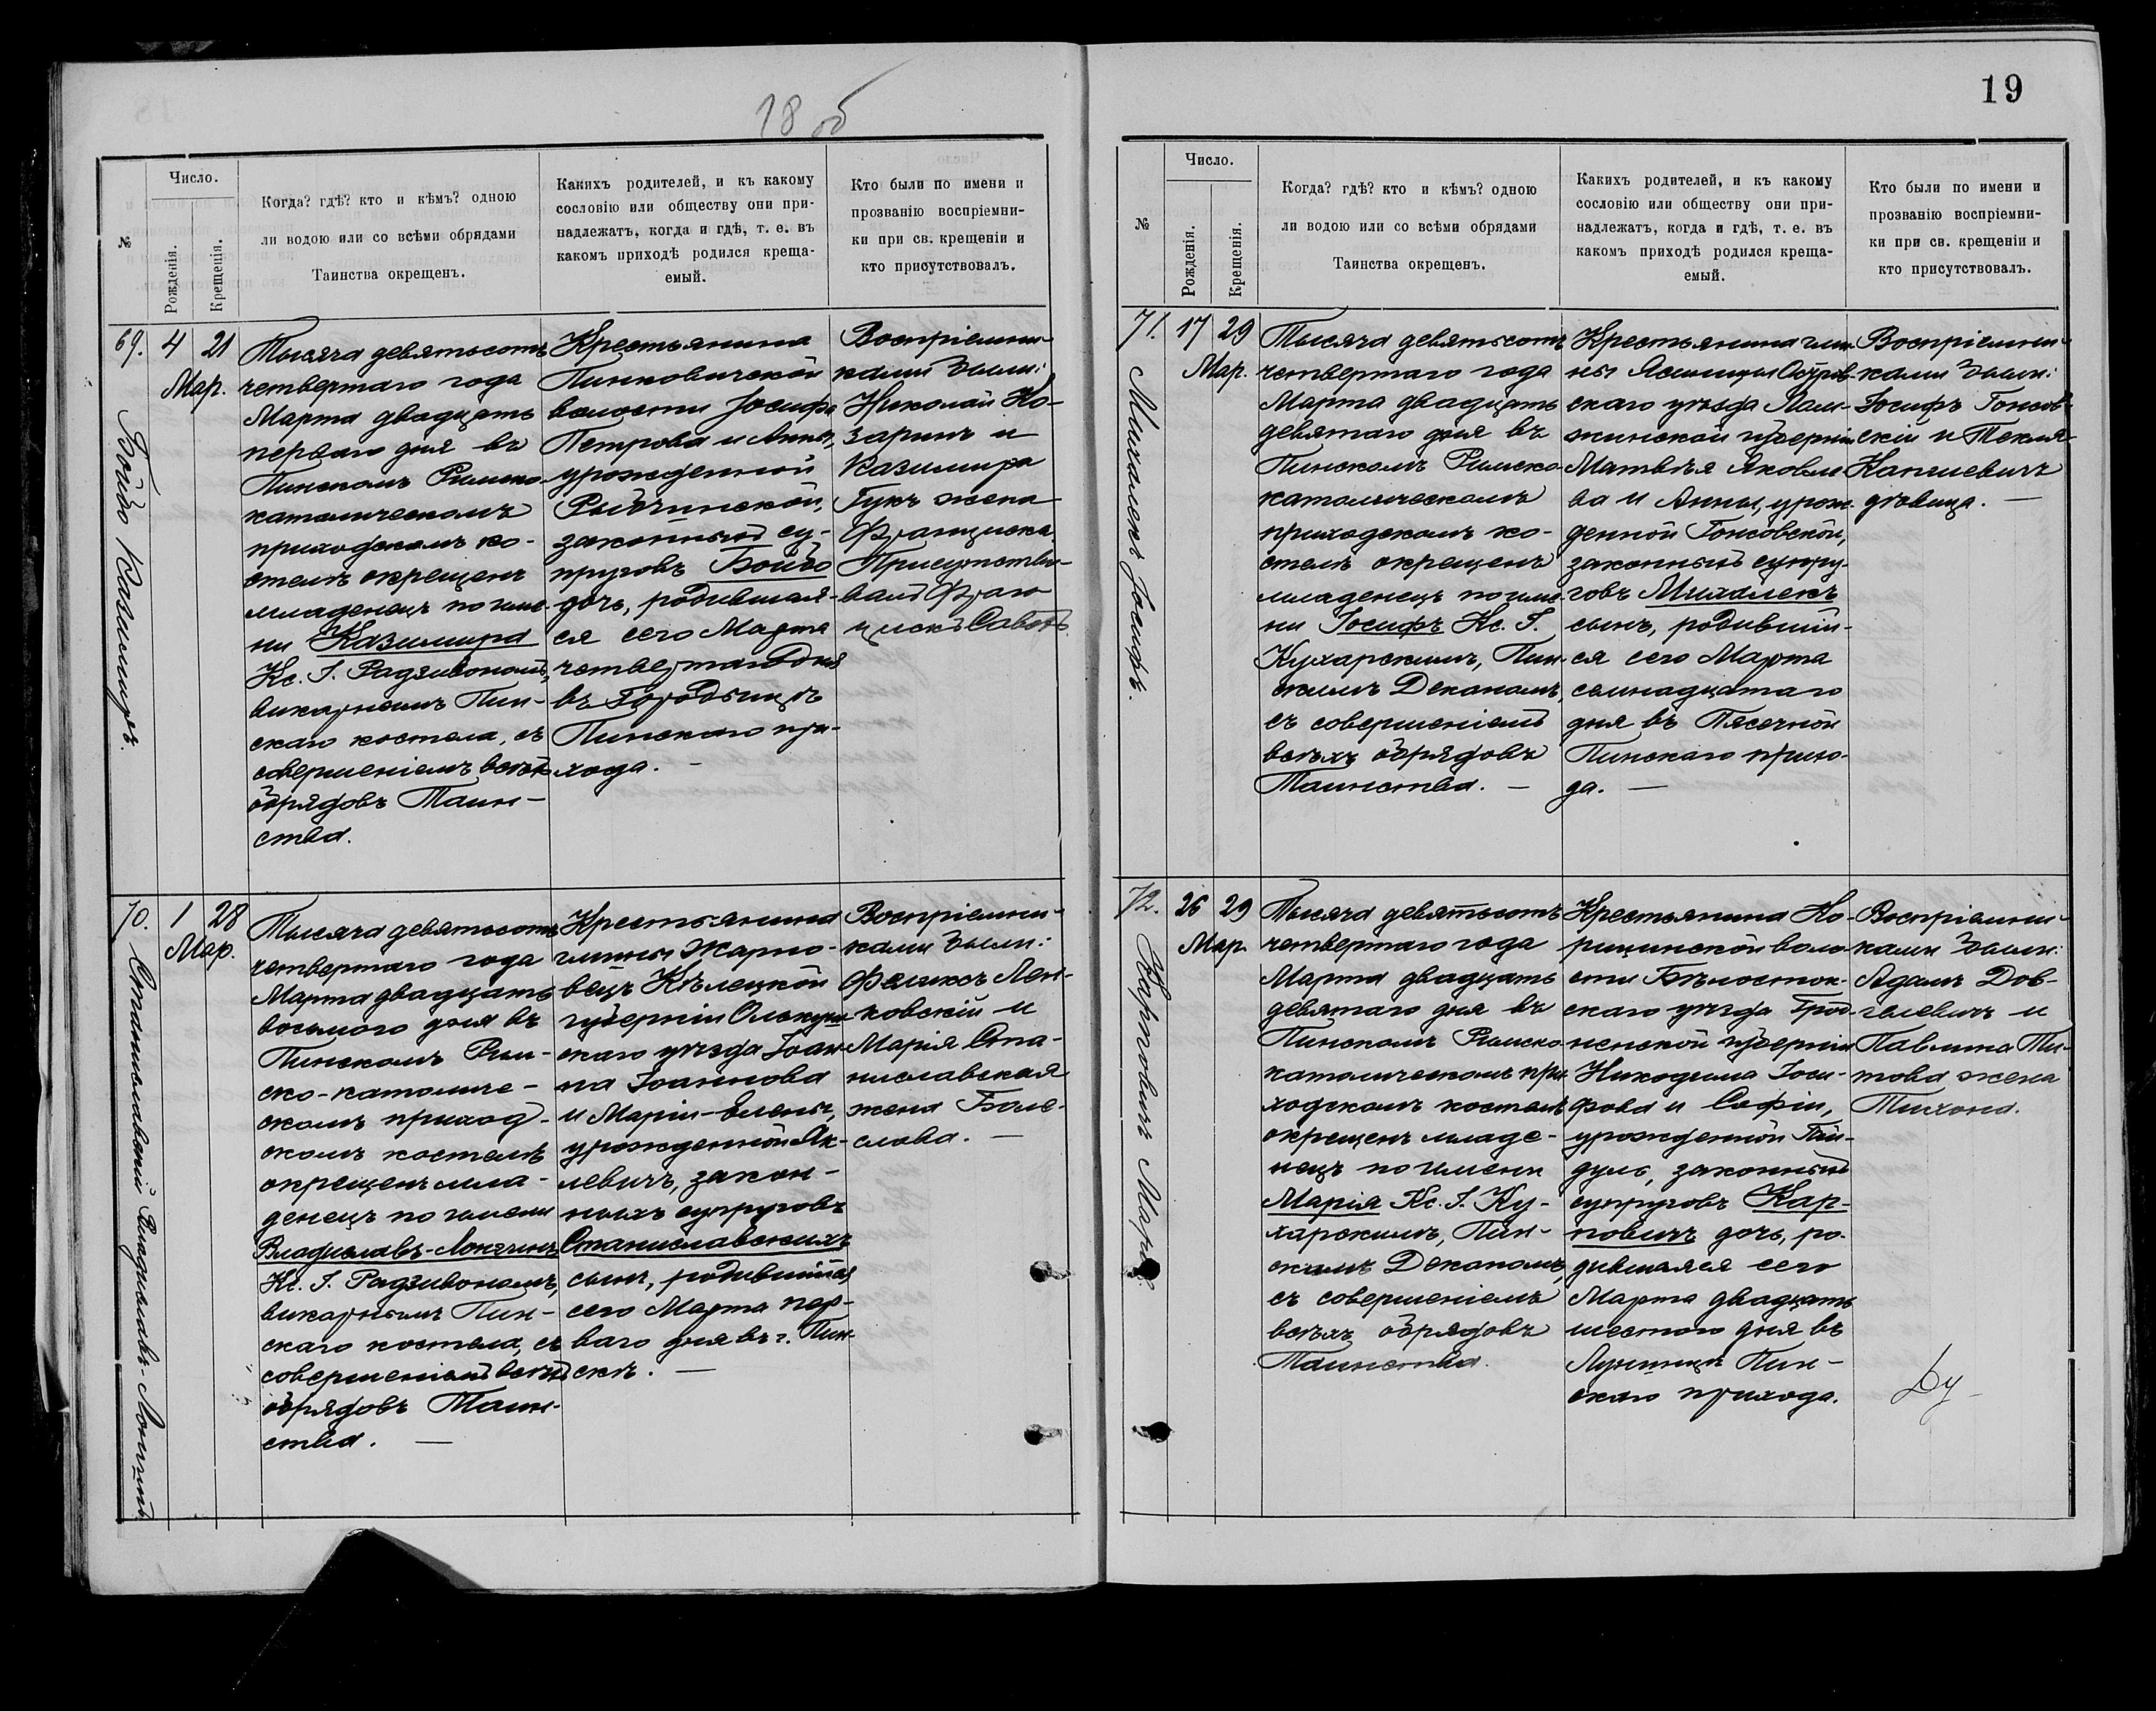 18 об
№
Число.
Рожденія.
Крещенія.
Когда? гдѣ? кто и кѣмъ? одною
ли водою или со всѣми обрядами
Таинства окрещенъ.
Какихъ родителей, и къ какому
сословію или обществу они при-
надлежатъ, когда и гдѣ, т. е. въ
какомъ приходѣ родился креща-
емый.
Кто были по имени и
прозванію воспріемни-
ки при св. крещеніи и
кто присутствовалъ.
69.
Бойко Казимиръ.
4 21
Мар.
Тысяча девятьсотъ
четвертаго года
Марта двадцать
перваго дня въ
Пинскомъ Римско-
католическомъ
приходскомъ ко-
стелѣ окрещенъ
младенецъ по име-
ни Казимира
Кс. І. Радзивономъ,
викарнымъ Пин-
скаго костела, съ
совершеніемъ всѣхъ
обрядовъ Таин-
ства.
Крестьянина
Пинковичской
волости Іосифа
Петрова и Анны,
урожденной
Рыбчинской,
законныхъ су-
пруговъ Бойко
дочь, родившая-
ся сего Марта
четвертаго дня
въ Городыщѣ
Пинскаго при-
хода. —
Воспріемни-
ками были:
Николай Ко-
заринъ и
Казимира
Гукъ жена
Франциска.
Присутство-
валъ Фран-
цискъ
70.
Станиславскій Владиславъ-Лонгинъ
1 28
Мар.
Тысяча девятьсотъ
четвертаго года
Марта двадцать
восьмого дня въ
Пинскомъ Рим-
ско-католиче-
скомъ приход-
скомъ костелѣ
окрещенъ мла-
денецъ по имени
Владиславъ-Лонгинъ
Кс. І. Радзивономъ,
викарнымъ Пин-
скаго костела, съ
совершеніемъ всѣхъ
обрядовъ Таин-
ства. —
Крестьянина
гмины Жарно-
вецъ Кѣлецкой
губерніи Олькуш-
скаго уѣзда Іоан-
на Іоаннова
и Маріи-Елены,
урожденной Як-
левичъ, закон-
ныхъ супруговъ
Станиславскихъ
сынъ, родившійся
сего Марта пер-
ваго дня въ г. Пин-
скѣ. —
Воспріемни-
ками были:
Феликсъ Лен-
ковскій и
Марія Ста-
ниславская
жена Боле-
слава. —
19
№
Число.
Рожденія.
Крещенія.
Когда? гдѣ? кто и кѣмъ? одною
ли водою или со всѣми обрядами
Таинства окрещенъ.
Какихъ родителей, и къ какому
сословію или обществу они при-
надлежатъ, когда и гдѣ, т. е. въ
какомъ приходѣ родился креща-
емый.
Кто были по имени и
прозванію воспріемни-
ки при св. крещеніи и
кто присутствовалъ.
71.
Михалекъ Іосифъ.
17 29
Мар.
Тысяча девятьсотъ
четвертаго года
Марта двадцать
девятаго дня въ
Пинскомъ Римско-
католическомъ
приходскомъ ко-
стелѣ окрещенъ
младенецъ по име-
ни Іосифъ Кс. І.
Кухарскимъ, Пин-
скимъ Деканомъ,
съ совершеніемъ
всѣхъ обрядовъ
Таинства. —
Крестьянина гми-
ны Ясиницы Остров-
скаго уѣзда Лом-
жинской губерніи
Матвѣя Яковле-
ва и Анны, урож-
денной Гонсовской,
законныхъ супру-
говъ Михалекъ
сынъ, родившій-
ся сего Марта
семнадцатаго
дня въ Пясечной
Пинскаго прихо-
да. —
Воспріемни-
ками были:
Іосифъ Гонсов-
скій и Текля
Капшевичъ
дѣвица. —
72.
Карповичъ Марія.
26 29
Мар.
Тысяча девятьсотъ
четвертаго года
Марта двадцать
девятаго дня въ
Пинскомъ Римско-
католическомъ при-
ходскомъ костелѣ
окрещенъ младе-
нецъ по имени
Марія Кс. І. Ку-
харскимъ, Пин-
скимъ Деканомъ,
съ совершеніемъ
всѣхъ обрядовъ
Таинства.
Крестьянина Но-
рицинской воло-
сти Бѣлосток-
скаго уѣзда Грод-
ненской губерніи
Никодима Іоси-
фова и Софіи,
урожденной Гай-
дуль, законныхъ
супруговъ Кар-
повичъ дочь, ро-
дившаяся сего
Марта двадцать
шестого дня въ
Лунинцѣ Пин-
скаго прихода.
Воспріемни-
ками были:
Адамъ Дов-
гялевичъ и
Павлина Ти-
това жена
Тихона.